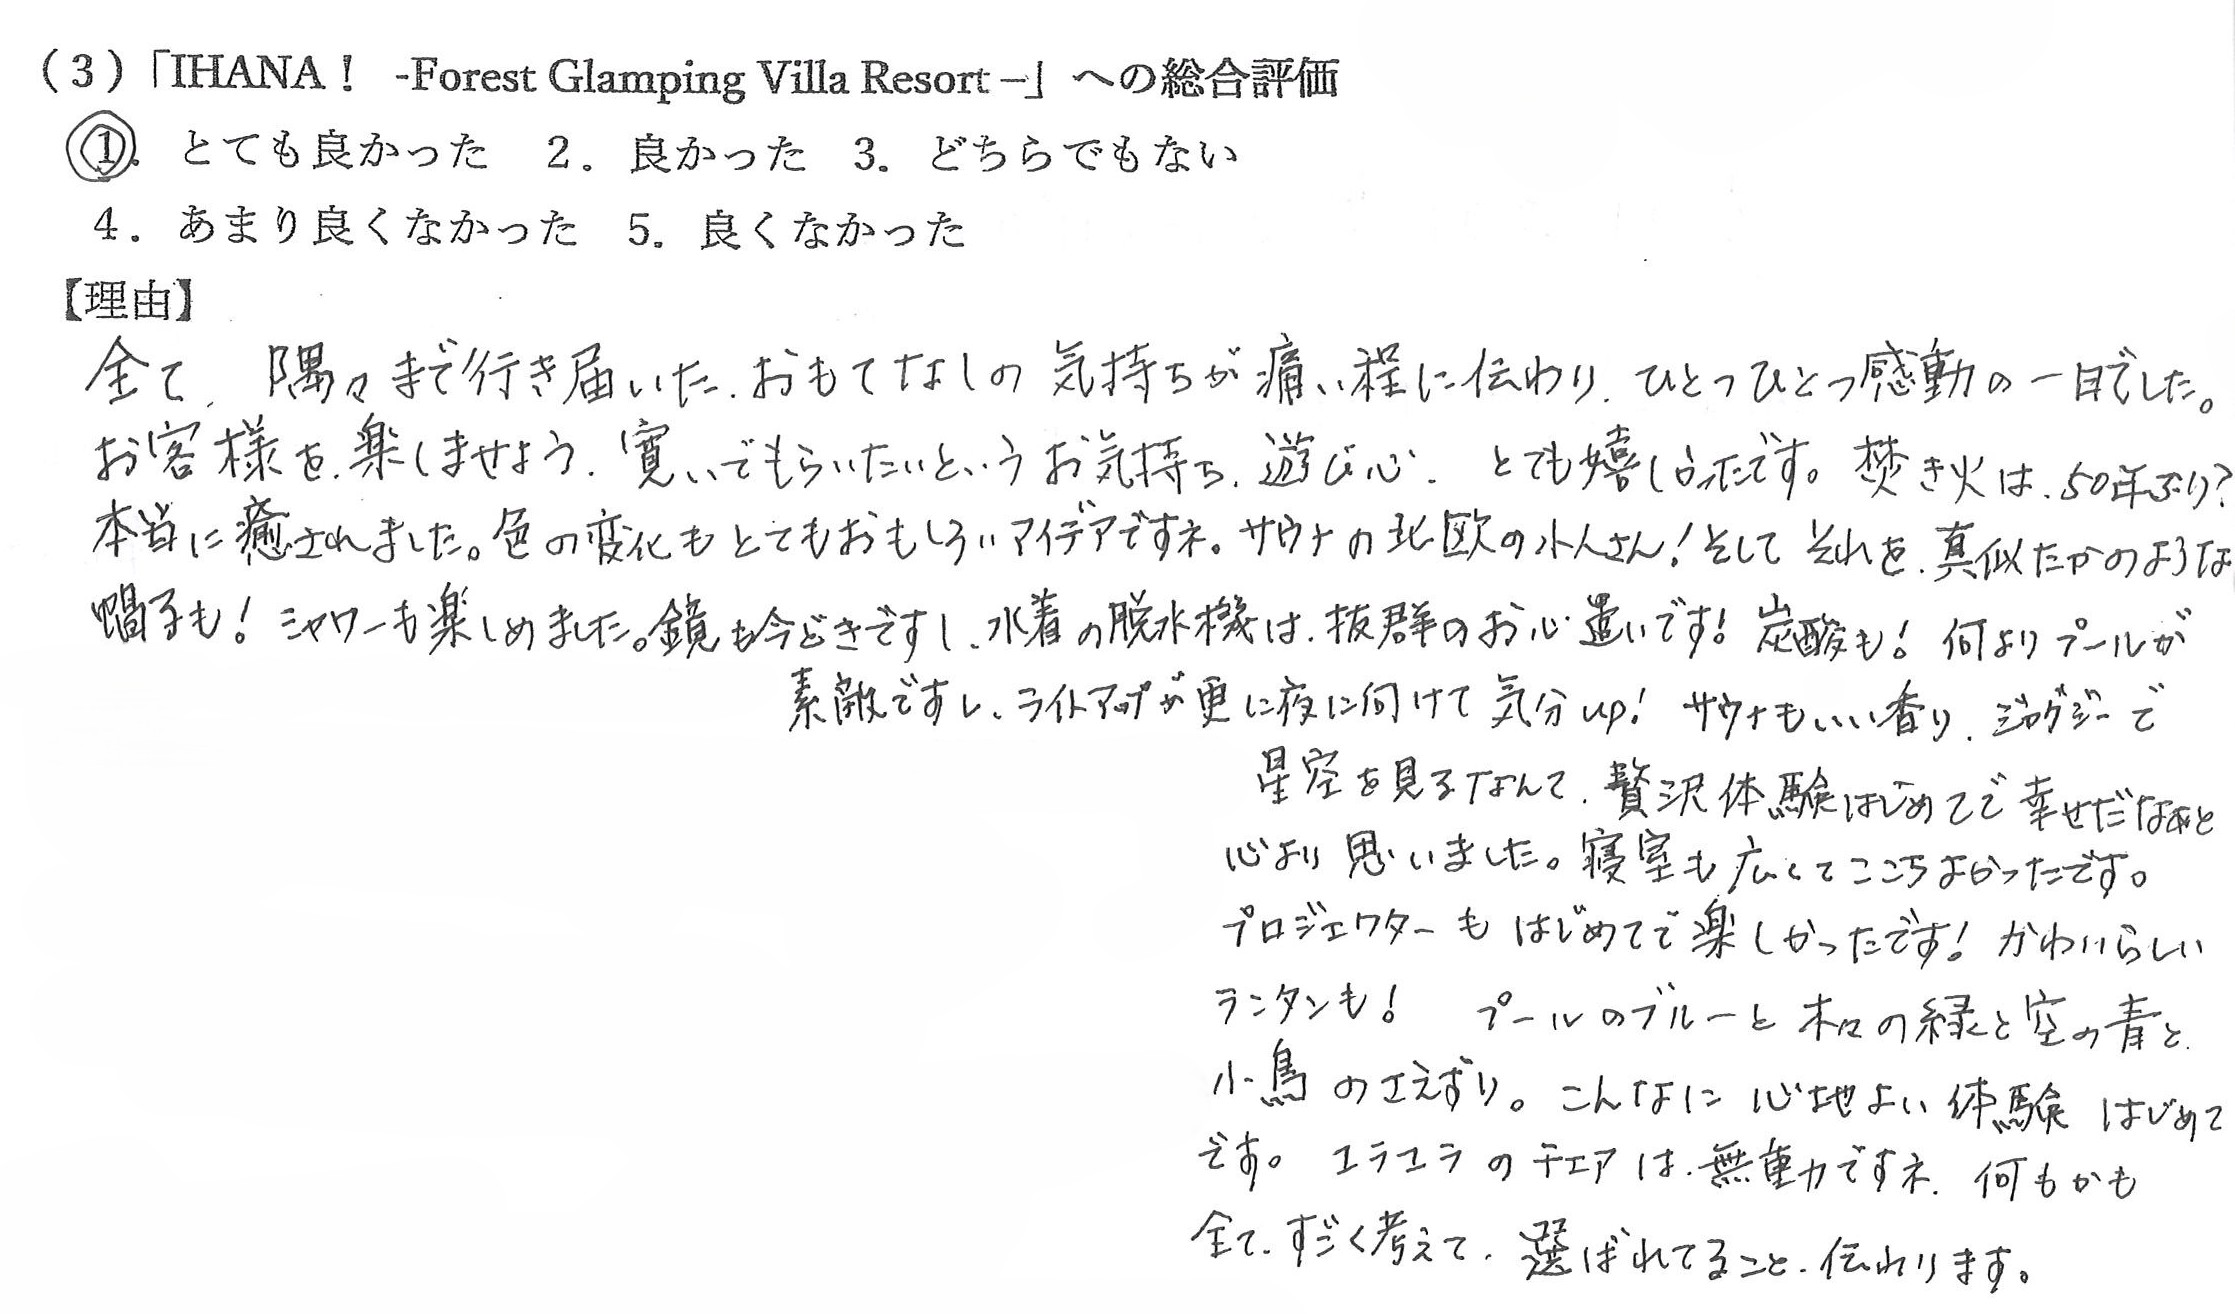 (3)「IHANA! -Forest Glamping Villa Resort–」への総合評価
1. とても良かった 2. 良かった 3. どちらでもない
4. あまり良くなかった 5. 良くなかった
【理由】
全て、隅々まで行き届いた、おもてなしの気持ちが痛い程に伝わり、ひとつひとつ感動の一日でした。
お客様を、楽しませよう、寛いでもらいたいというお気持ち、遊び心、とても嬉しかったです。焚き火は、50年ぶり?
本当に癒されました。色の変化もとてもおもしろいアイデアですネ。サウナの北欧の小人さん!そしてそれを、真似たかのような
帽子も! シャワーも楽しめました。鏡も今どきですし、水着の脱水機は、抜群のお心遣いです! 炭酸も! 何よりプールが
素敵ですし、ライトアップが更に夜に向けて気分up! サウナもいい香り、ジャグジーで
星空を見るなんて、贅沢体験はじめてで幸せだなあと
心より思いました。寝室も広くてここちよかったです。
プロジェクターもはじめてで楽しかったです! かわいらしい
ランタンも! プールのブルーと木々の緑と空の青と、
小鳥のさえずり。こんなに心地よい体験はじめて
です。ユラユラのチェアは、無重力ですネ、何もかも
全て、すごく考えて、選ばれてること、伝わります。